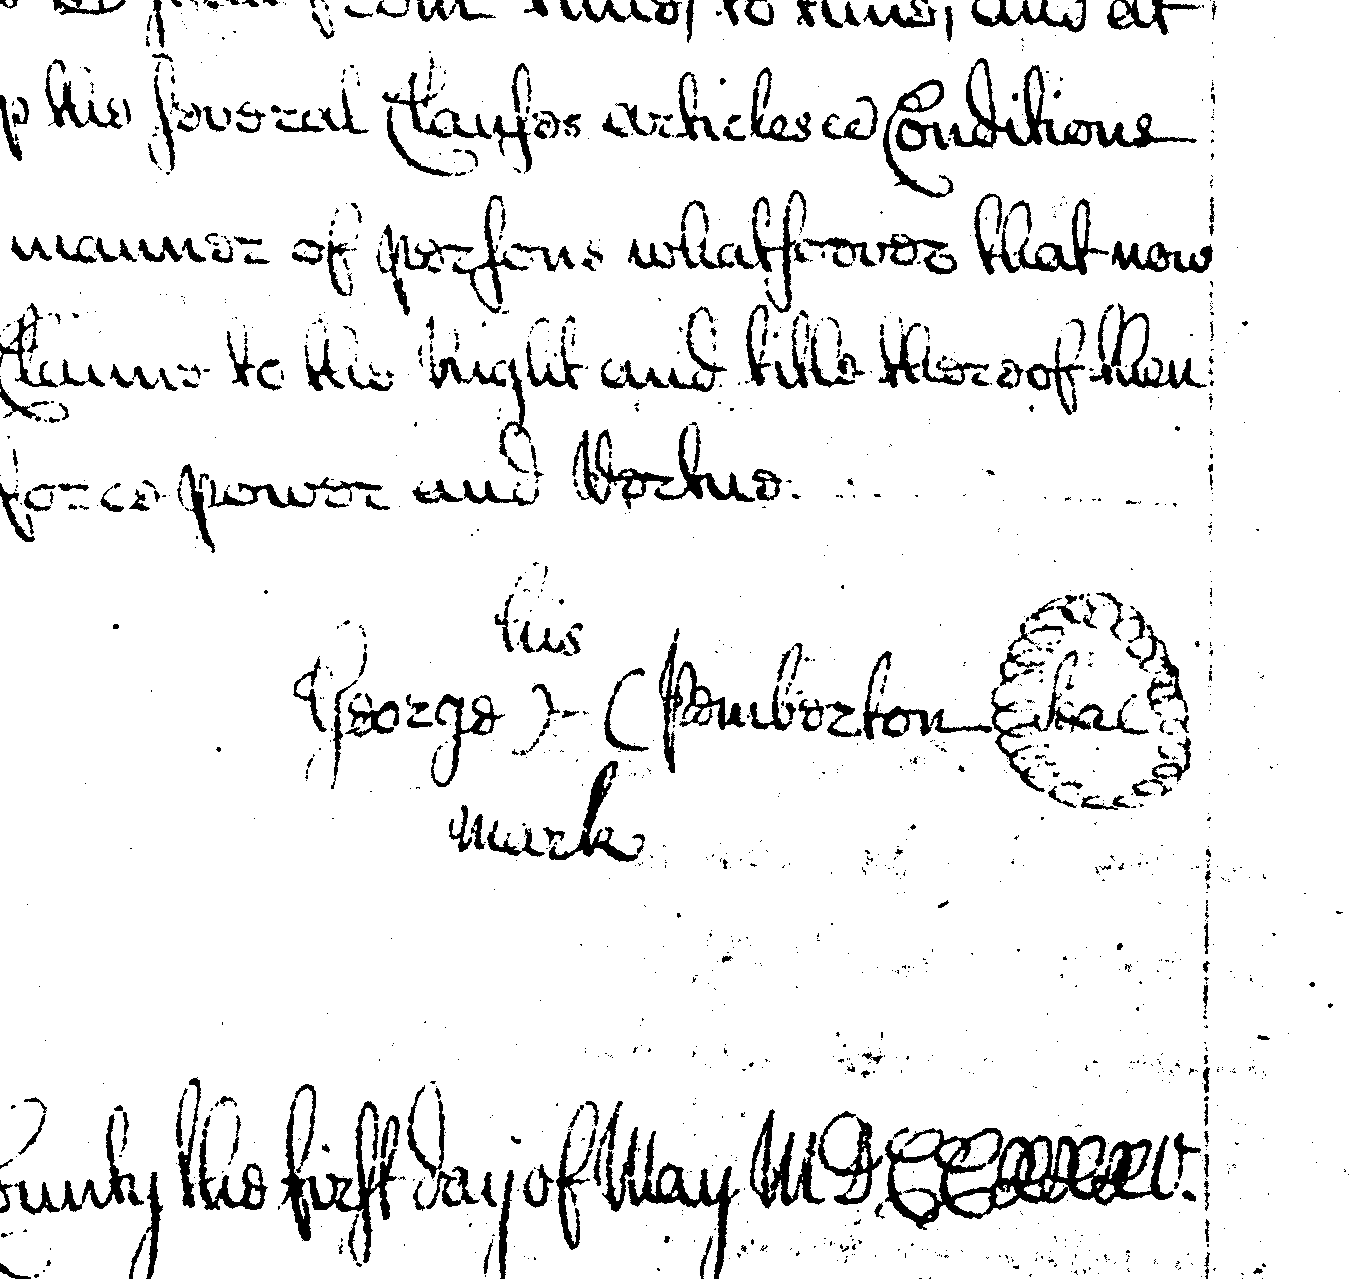 from time, to time, and at
the several Clauses articles and Conditions
manner of persons whatsoever that now
Claime to the right and title thereof then
force power and Vertue.
his
George )-( Pemberton Seal
mark
County the first day of May MDCC